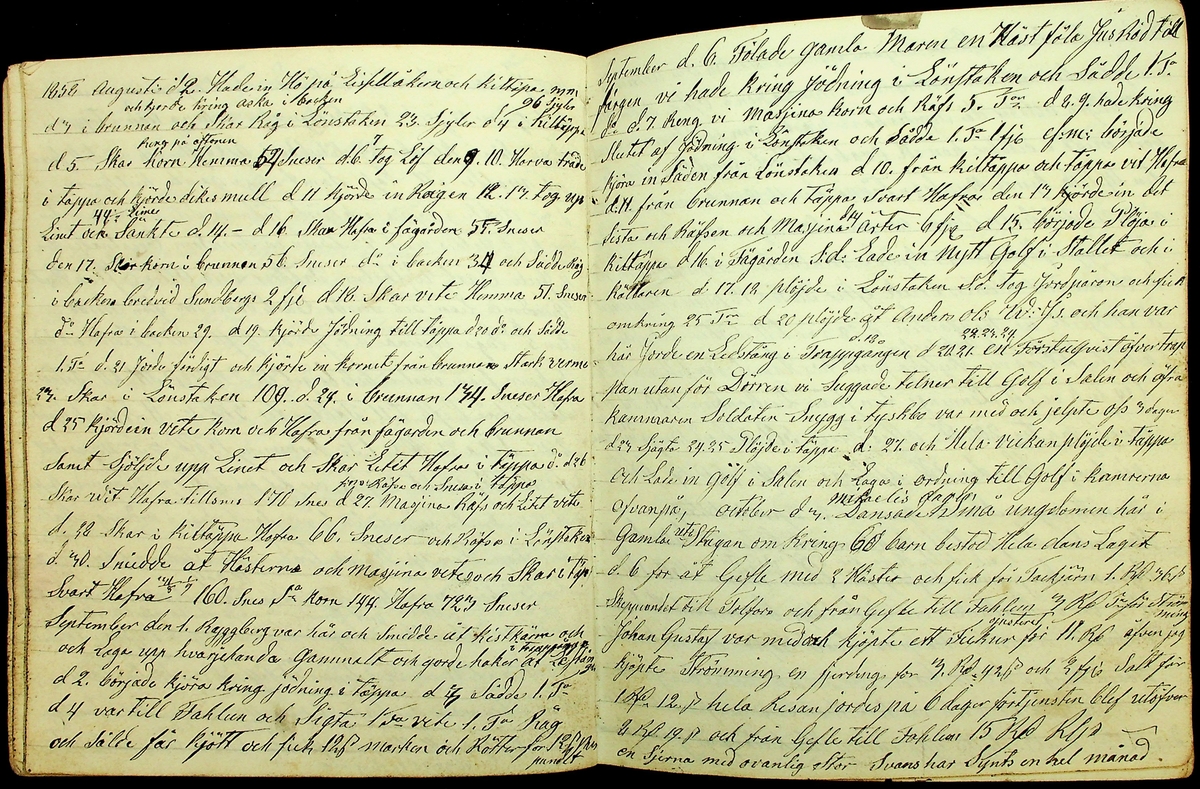 1858 Augusti d 2. Hade in Hö på Lisselåkern och Kiltäppa mm
och kjörde kring aska i backen 96 Sjyler
d 3 i brunnan och Skar Råg i Lönstaken 23. Sjyler d 4 i Kiltäppa
Räng på aftonen
d 5. Skar korn Hemma 64 Sneser d 6. 7 tog Löf den 9. 10. Harva träde
i täppa och kjörde dikesmull d 11 kjörde in Rågen 12. 13 tog up
44 limer
Linet och Sänkte d. 14 – d 16. Skar Hafra i fägården 55. Sneser
den 17. Skar korn i brunnan 56. Sneser do i backen 34 och Sådde Råg
i backen bredvid Sundbergs 2 fjl d 18. Skar vete Hemma 51. Sneser
do Hafra i backen 29. d 19. kjörde Jödning till täppa d 20 do och Sådde
1. Ta d. 21 Jorde färdigt och kjörde in kornet från brunnan Stark värme
23. Skar i Lönstaken 109. d. 24. i brunnan 134. Sneser Hafra
d 25 kjörde in vete korn och Hafra från fägården och brunnan
Samt Sjöljde upp Linet och Skar Litet Hafra i täppa do d 26
Räfsa och Snesa i täppa
Skar vit Hafra tillsms 171 Snes d 27. Masjina Räfs och Litet vete
d. 28 Skar i kiltäppa Hafra 66. Sneser och Räfsa i Lönstaken
d. 30. Smidde åt Hästerna och masjina vete och Skar i täpa
Svart Hafra 160. Snes Sa korn 144. Hafra 723 Sneser
September den 1. Raggberg var här och Smidde åt kistkärra och
i trappgången
och Laga upp hvarjehanda Gammalt och gorde haker åt Ledstång
d 2. började kjöra kring jödning i täppa d 3 Sådde 1. Ta
d 4 var till Fahlun och Sigta 1 Ta vete 1. Ta Råg
och Sålde får kjött och fick 12 marken och Rötter for 12
pundet
September d. 6. Fölade gamla Maren en Häst föla Jus Röd till
färgen vi hade kring Jödning i Lönstaken och Sådde 1. Ta
do d. 7. Reng. vi Masjina korn och Räfs 5. Tor d 8. 9. hade kring
Slutet af Jödning i Lönstaken och Sådde 1. Ta 1 fjl ef:m: började
kjöra in Säden från Lönstaken d 10. från kiltäppa och täppa vit Hafra
d. 11. från brunnan och täppa Svart Hafra den 13 kjörde in det
Sista och Räfsen och Masjina d 14 ärter 6 fjl d 15. började Plöja i
kiltäppa d 16. i Fägården S:d: Lade in Nytt Golf i Stallet och i
källaren d 17. 18 plöjde i Lönstaken S.d. tog Jordpäron och fick
omkring 25 Tor d 20 plöjde åt Anders Ols: W: Hs. och han var
22. 23. 24
här Jorde en Ledstång i Trappgången d 20. 21. en Förstuqvist öfver trap
plan utan för Dörren vi Huggade telner till Golf i Salen och öfra
kammaren Soldaten Snygg i tyskbo var med och jelpte oss 3 dager
d 23 Sågta 24. 25 Plöjde i täppa d. 27. och Hela Veckan plöjde i täppa
och Lade in Golf i Salen och Laga i ordning till Golf i kamrerna
mikaelis dagen
ofvanpå, october d 3. Dansade Små ungdomen här i
Gamla Stugan om kring 60 barn bestod Hela dans Laget
d. 6 for åt Gefle med 2 Häster och fick for Tackjern 1. Rd 36
Skeppundet till Tolfors och från Gefle till Fahlun 3 Rd för Ström
ming
Johan Gustaf var med och kjöpte ett Fickur för 11. Rd äfven jag
kjöpte Strömming en fjerding för 3. Rd 42 och 3 fjl Salt för
1 Rd. 12. hela Resan jordes på 6 dager förtjensten blef utöfver
4 Rd 19 och från Gefle till Fahlun 15 Rd
en Stjerna med ovanlig stor Svans har Synts en hel månad.